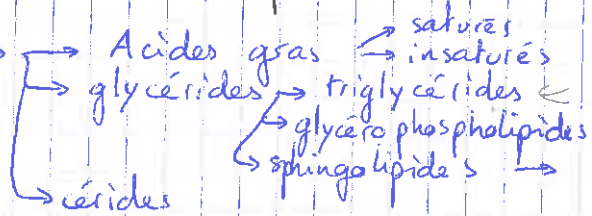 → Acides gras → saturés
→ insaturés
→ glycérides → triglycérides ←
→ glycérophospholipides
→ sphingolipides →
→ cérides